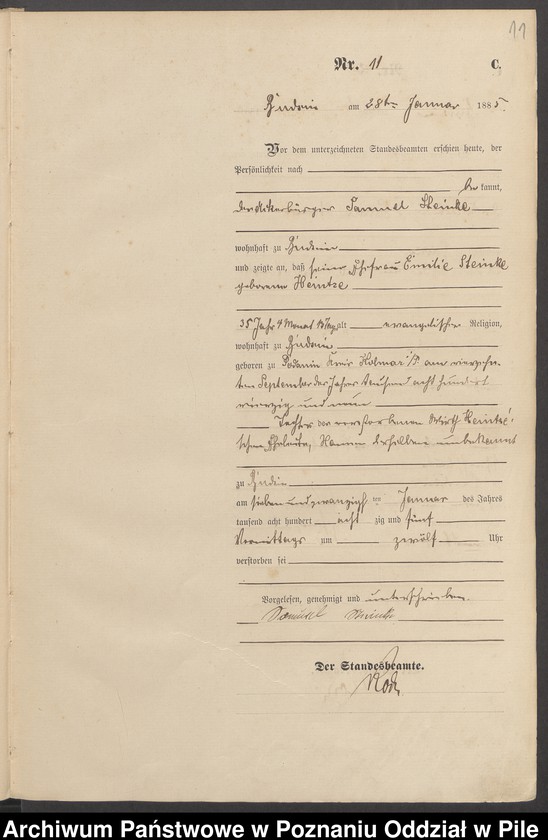 11
Nr. 11 C.
Budsin am 28ten Januar 1885.
Vor dem unterzeichneten Standesbeamten erschien heute, der
Persönlichkeit nach
bekannt,
der Ackerbürger Samuel Steinke
wohnhaft zu Budsin
und zeigte an, daß seine Ehefrau Emilie Steinke
geborene Heintze
35 Jahr 4 Monat Tage alt evangelischer Religion,
wohnhaft zu Budsin
geboren zu Podanin Kreis Kolmar i/P am vierzehn
ten September des Jahres tausend acht hundert
vierzig und neun
Tochter der verstorbenen Wirth Heintze'
schen Eheleute, Namen derselben unbekannt
zu Budsin
am sieben und zwanzigsten Januar des Jahres
tausend acht hundert acht zig und fünf
Vormittags um zwölf Uhr
verstorben sei
Vorgelesen, genehmigt und unterschrieben.
Samuel Steinke
Der Standesbeamte.
Archiwum Państwowe w Poznaniu Oddział w Pile